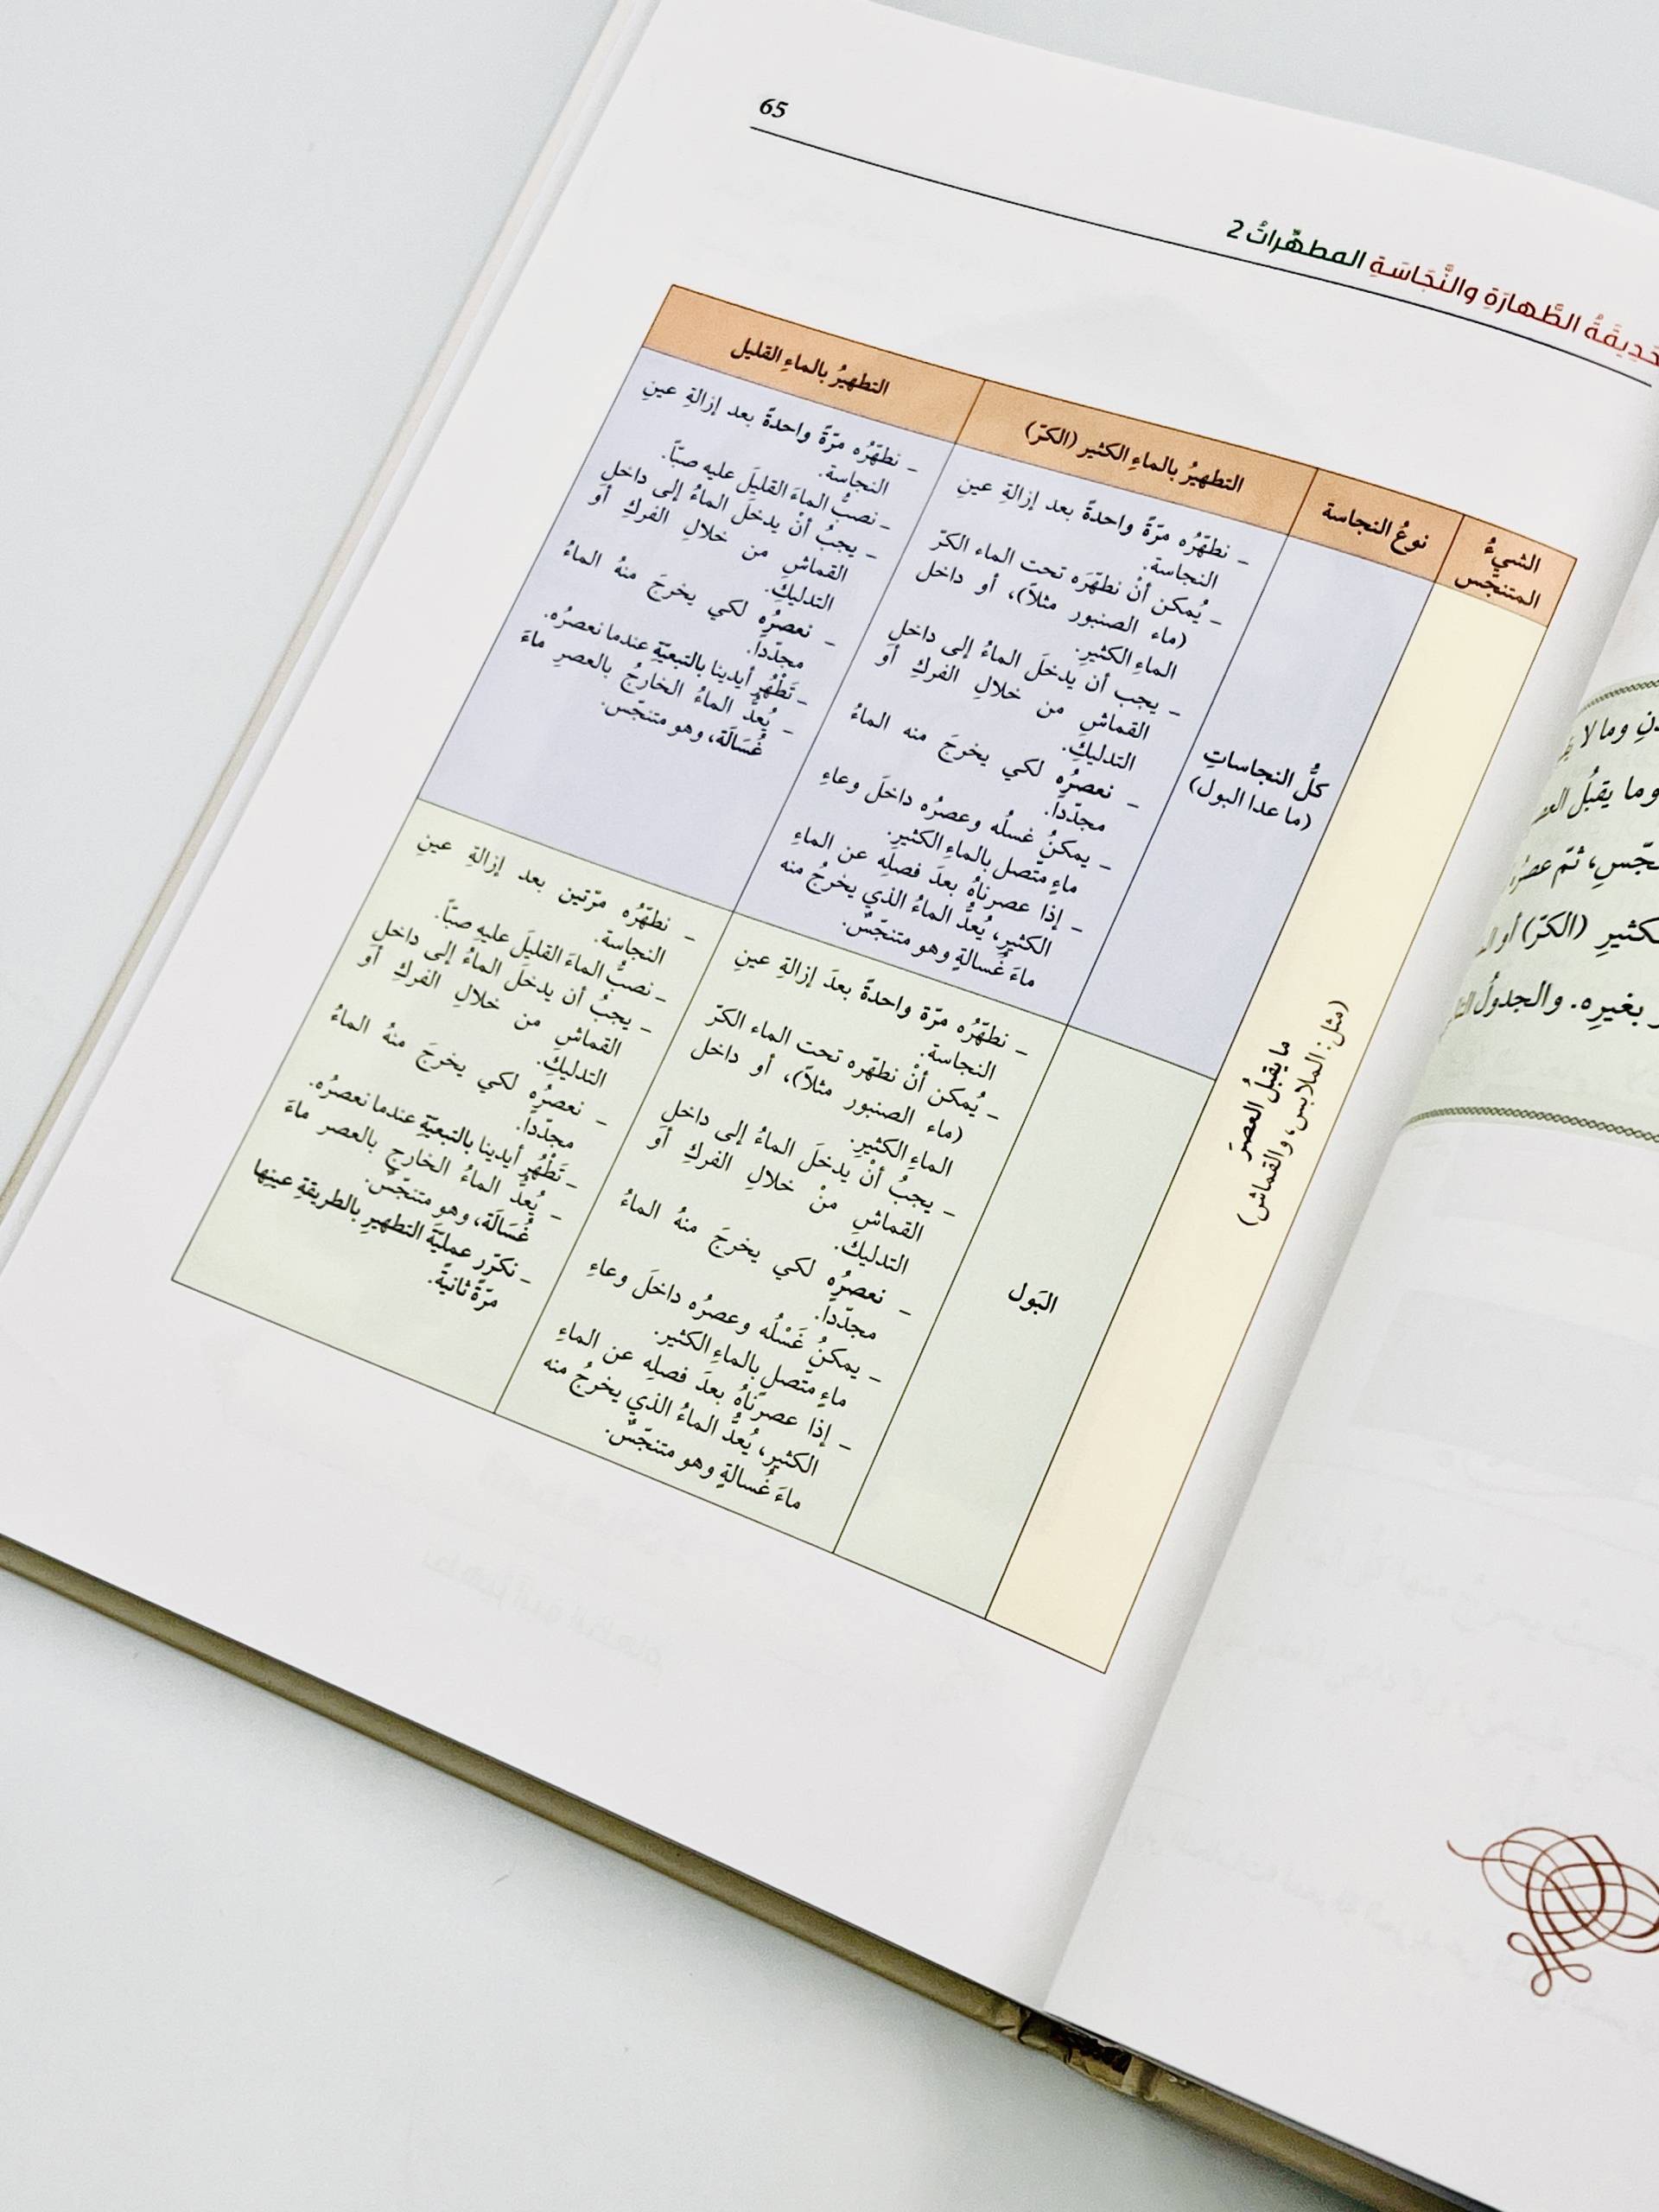 65
الطَّهارَةِ والنَّجَاسَةِ المطهِّراتُ 2
الشيءُ
المتنجّس
نوعُ النجاسة
التطهيرُ بالماءِ الكثير (الكرّ)
التطهيرُ بالماءِ القليل
ما يقبلُ العصرَ
(مثل: الملابس، والقماش)
كلُّ النجاساتِ
(ما عدا البول)
- نطهّرُه مرّةً واحدةً بعد إزالةِ عينِ
النجاسة.
- يُمكن أنْ نطهّرَه تحت الماء الكرّ
(ماء الصنبور مثلاً)، أو داخل
الماءِ الكثيرِ.
- يجب أن يدخلَ الماءُ إلى داخلِ
القماشِ من خلالِ الفركِ أو
التدليكِ.
- نعصرُه لكي يخرجَ منه الماءُ
مجدّداً.
- يمكنُ غسلُه وعصرُه داخلَ وعاءِ
ماءٍ متّصل بالماءِ الكثيرِ.
- إذا عصرناهُ بعدَ فصلِه عن الماءِ
الكثيرِ، يُعدُّ الماءُ الذي يخرجُ منه
ماءَ غُسالةٍ وهو متنجّسٌ.
- نطهّرُه مرّةً واحدةً بعد إزالةِ عينِ
النجاسة.
- نصبُّ الماءَ القليلَ عليه صبّاً.
- يجبُ أنْ يدخلَ الماءُ إلى داخلِ
القماشِ من خلالِ الفركِ أو
التدليكِ.
- نعصرُه لكي يخرجَ منهُ الماءُ
مجدّداً.
- تَطْهُر أيدينا بالتبعيّةِ عندما نعصرُه.
- يُعدُّ الماءُ الخارجُ بالعصرِ ماءَ
غُسَالَة، وهو متنجّس.
البَول
- نطهّرُه مرّة واحدةً بعدَ إزالةِ عينِ
النجاسة.
- يُمكن أنْ نطهّره تحت الماء الكرّ
(ماء الصنبور مثلاً)، أو داخل
الماءِ الكثيرِ.
- يجبُ أنْ يدخلَ الماءُ إلى داخلِ
القماشِ منْ خلالِ الفركِ أو
التدليك.
- نعصرُه لكي يخرجَ منهُ الماءُ
مجدّداً.
- يمكنُ غَسْلُه وعصرُه داخلَ وعاءِ
ماءٍ متّصل بالماءِ الكثير.
- إذا عصرّناهُ بعدَ فصلِه عن الماءِ
الكثيرِ، يُعدُّ الماءُ الذي يخرجُ منه
ماءَ غُسالةٍ وهو متنجّسٌ.
- نطهّرُه مرّتين بعد إزالةِ عينِ
النجاسة.
- نصبُّ الماءَ القليلَ عليهِ صبّاً.
- يجبُ أن يدخلَ الماءُ إلى داخلِ
القماشِ من خلالِ الفركِ أو
التدليكِ.
- نعصرُه لكي يخرجَ منهُ الماءُ
مجدّداً.
- تَطْهُر أيدينا بالتبعيّةِ عندما نعصرُه.
- يُعدُّ الماءُ الخارج بالعصر ماءَ
غُسَالَة، وهو متنجّس.
- نكرّر عمليّةَ التطهيرِ بالطريقةِ عينِها
مرّةً ثانيةً.
وما لا
وما يقبلُ
ثمّ
(الكرّ)
بغيرِه. والجدولُ